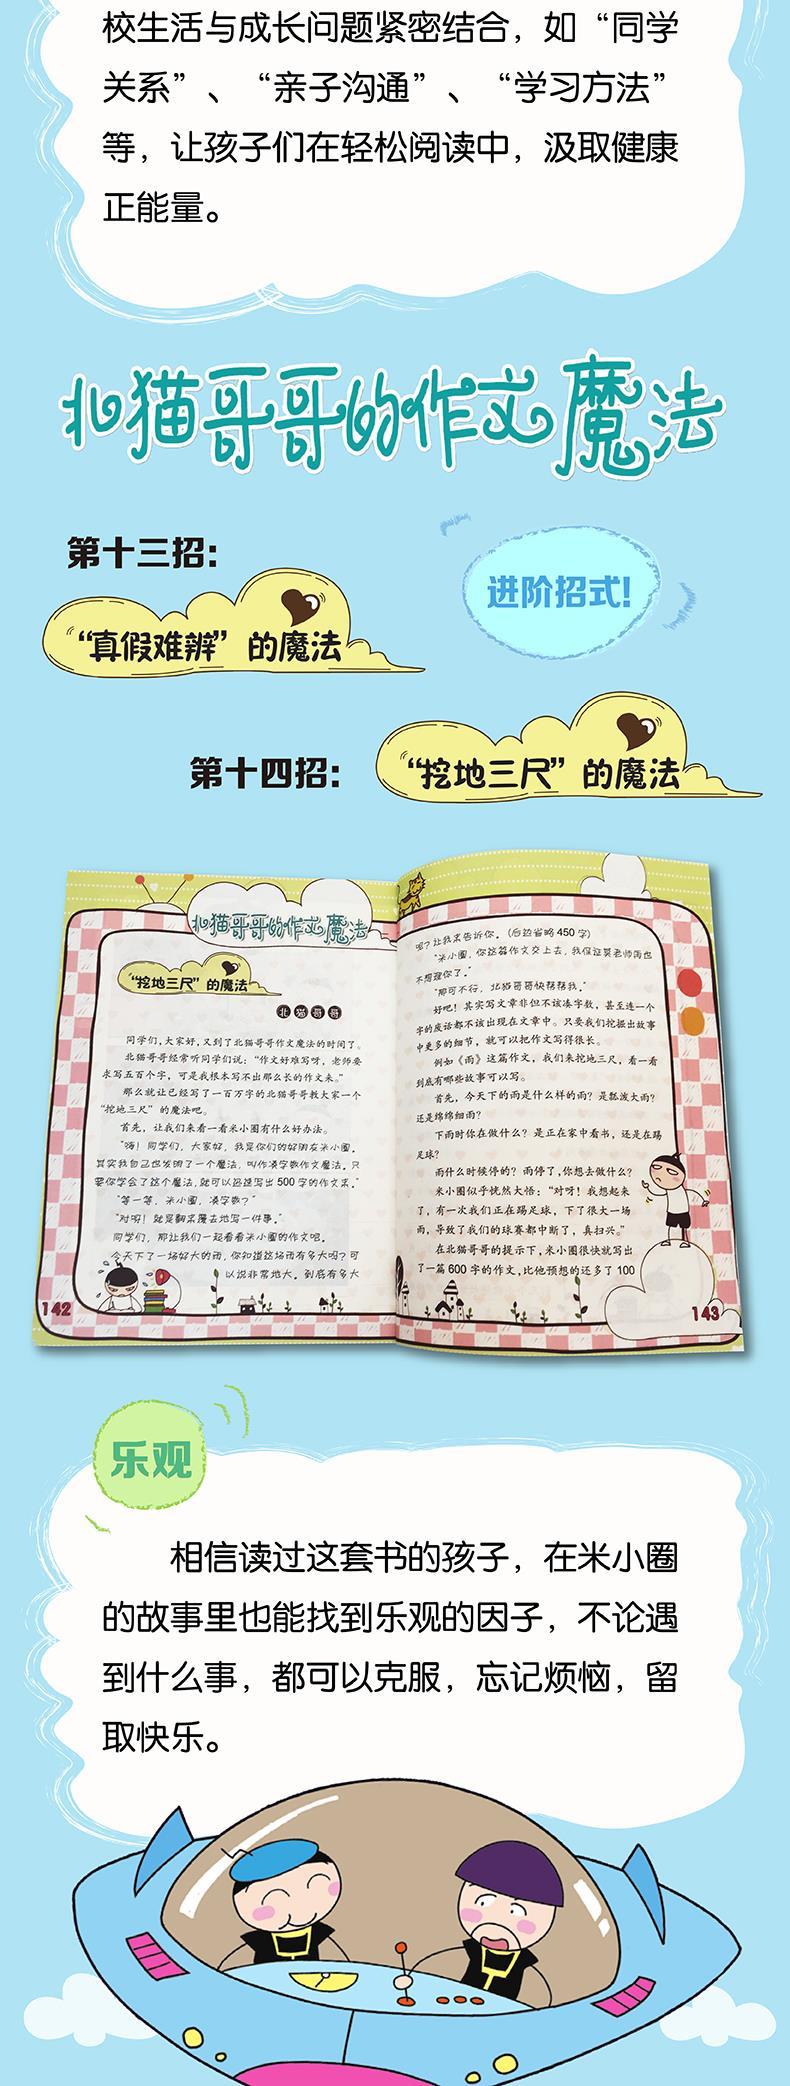 校生活与成长问题紧密结合，如“同学
关系”、“亲子沟通”、“学习方法”
等，让孩子们在轻松阅读中，汲取健康
正能量。
北猫哥哥的作文魔法
第十三招：
“真假难辨”的魔法
进阶招式！
第十四招：
“挖地三尺”的魔法
北猫哥哥的作文魔法
“挖地三尺”的魔法
北猫哥哥
同学们，大家好，又到了北猫哥哥作文魔法的时间了。
北猫哥哥经常听同学们说：“作文好难写呀，老师要
求写五百个字，可是我根本写不出那么长的作文来。”
那么就让已经写了一百万字的北猫哥哥教大家一个
“挖地三尺”的魔法吧。
首先，让我们来看一看米小圈有什么好办法。
“嗨！同学们，大家好，我是你们的好朋友米小圈。
其实我自己也发明了一个魔法，叫作凑字数作文魔法。只
要你学会了这个魔法，就可以迅速写出500字的作文来。”
“等一等，米小圈，凑字数？”
“对呀！就是翻来覆去地写一件事。”
同学们，那让我们一起看看米小圈的作文吧。
今天下了一场好大的雨，你知道这场雨有多大吗？可
以说非常地大，到底有多大
142
呢？让我来告诉你。（后边省略450字）
“米小圈，你这篇作文交上去，我保证莫老师再也
不想理你了。”
“那可不行，北猫哥哥快帮帮我。”
好吧！其实写文章非但不该凑字数，甚至连一个
字的废话都不该出现在文章中。只要我们挖掘出故事
中更多的细节，就可以把作文写得很长。
例如《雨》这篇作文，我们来挖地三尺，看一看
到底有哪些故事可以写。
首先，今天下的雨是什么样的雨？是瓢泼大雨？
还是绵绵细雨？
下雨时你在做什么？是正在家中看书，还是在踢
足球？
雨什么时候停的？雨停了，你想去做什么？
米小圈似乎恍然大悟：“对呀！我想起来
了，有一次我们正在踢足球，下了很大一场
雨，导致了我们的球赛都中断了，真扫兴。”
在北猫哥哥的提示下，米小圈很快就写出
了一篇600字的作文，比他预想的还多了100
143
乐观
相信读过这套书的孩子，在米小圈
的故事里也能找到乐观的因子，不论遇
到什么事，都可以克服，忘记烦恼，留
取快乐。